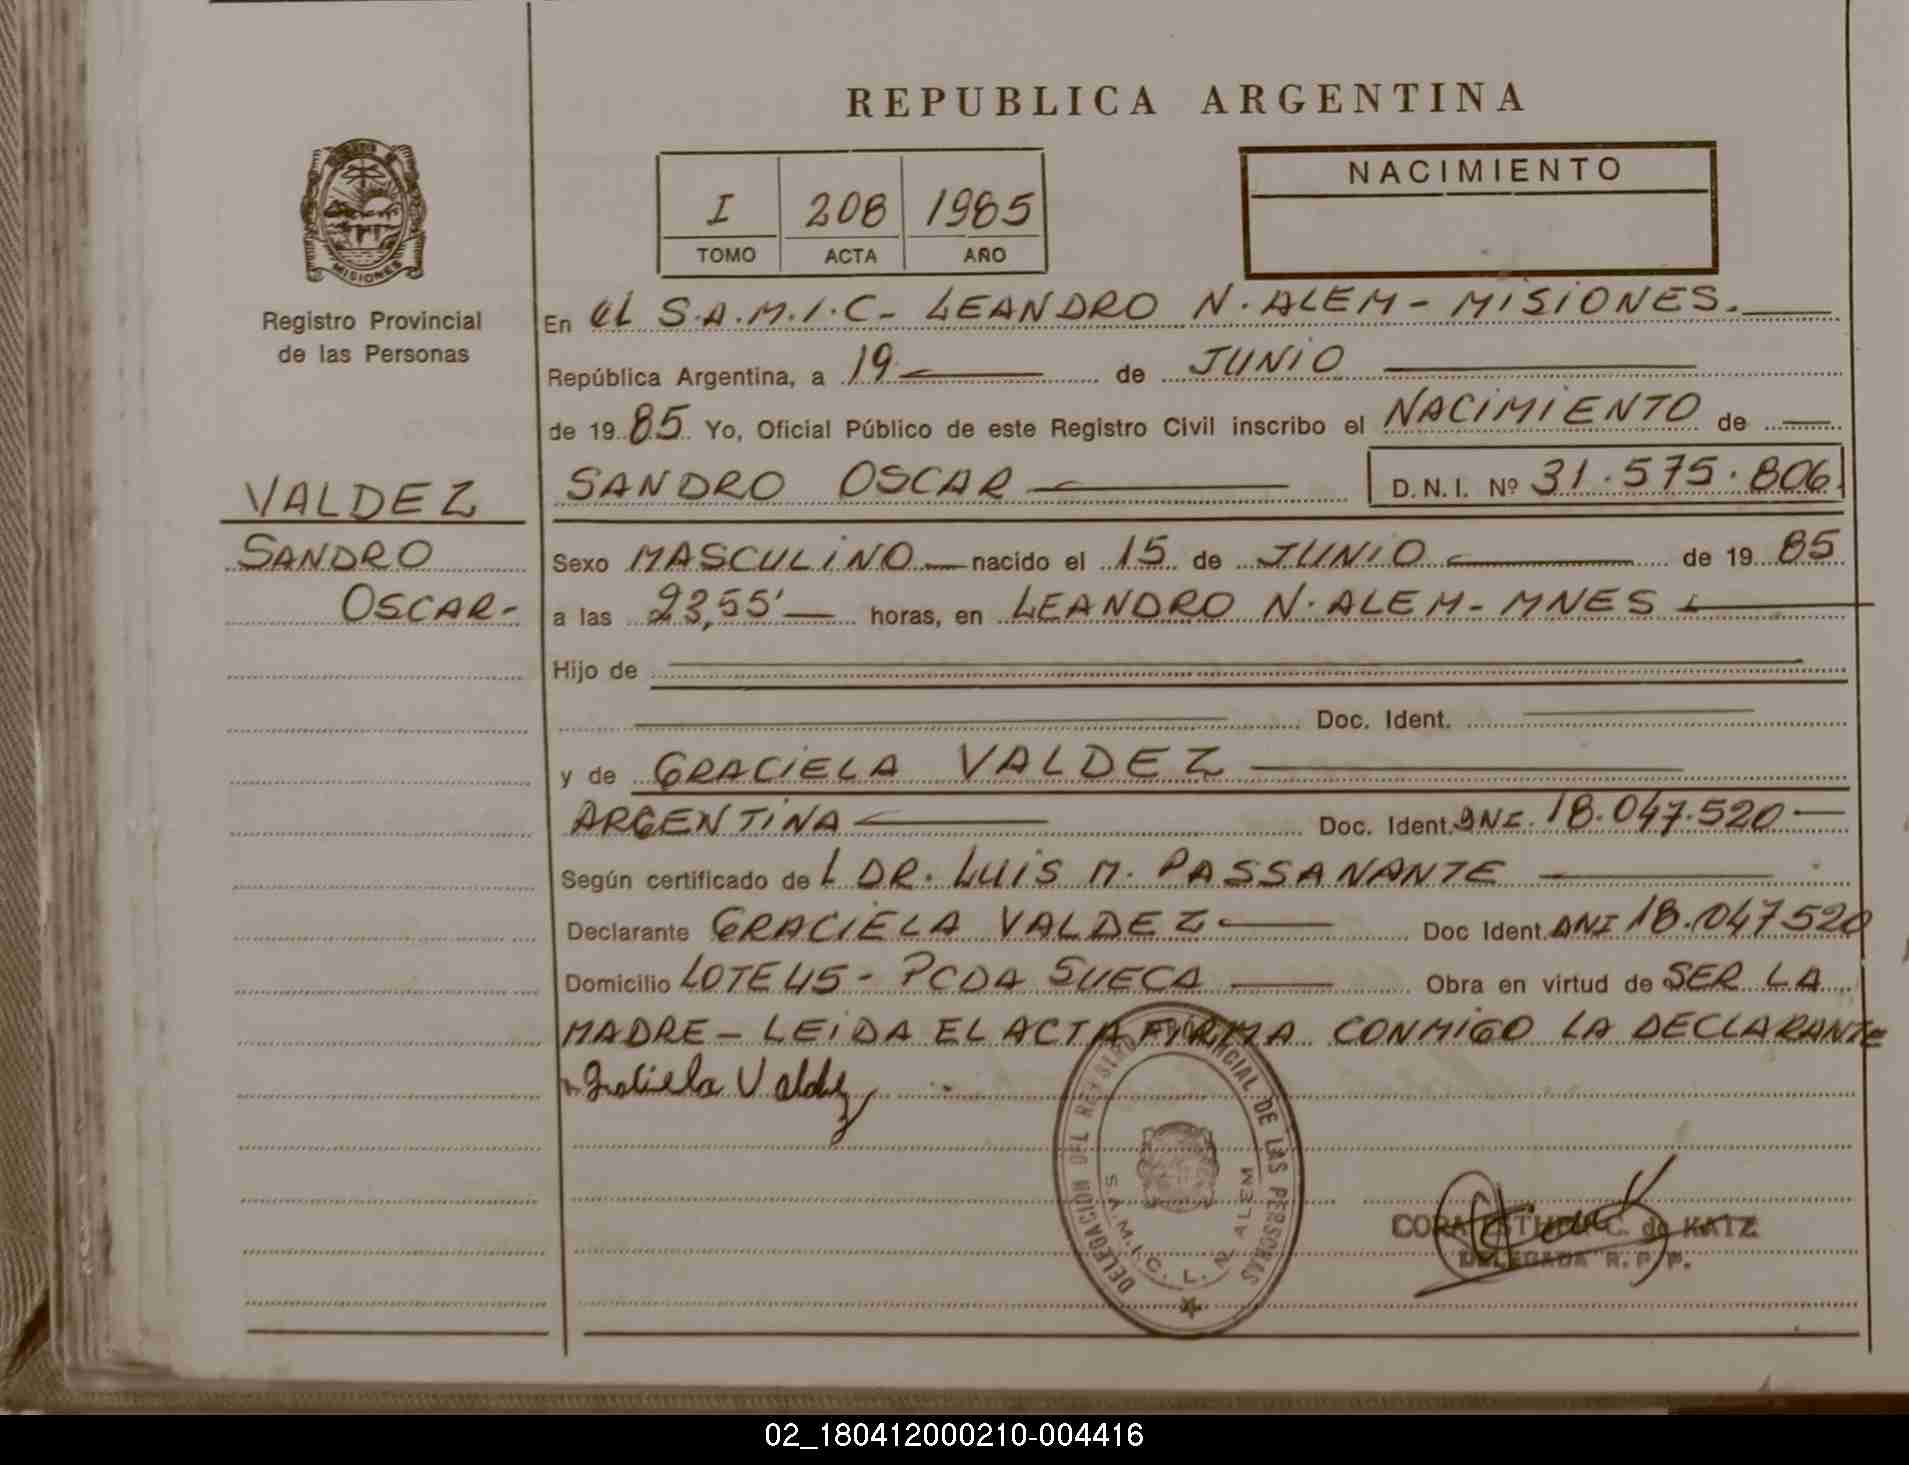 REPUBLICA ARGENTINA
NACIMIENTO
I 208 1985
TOMO ACTA AÑO
MISIONES
Registro Provincial
de las Personas
VALDEZ
SANDRO
OSCAR-
En el S.A.M.I.C- LEANDRO N.ALEM - MISIONES.
República Argentina, a 19 de JUNIO
de 1985 Yo, Oficial Público de este Registro Civil inscribo el NACIMIENTO de
SANDRO OSCAR D.N.I. Nº 31.575.806
Sexo MASCULINO nacido el 15 de JUNIO de 1985
a las 23,55' horas, en LEANDRO N.ALEM-MNES
Hijo de
Doc. Ident.
y de GRACIELA VALDEZ
ARGENTINA Doc. Ident. DNI. 18.047.520
Según certificado del DR. LUIS M. PASSANANTE
Declarante GRACIELA VALDEZ Doc Ident. DNI 18.047520
Domicilio LOTE 45 - PCDA SUECA Obra en virtud de SER LA
MADRE - LEIDA EL ACTA FIRMA CONMIGO LA DECLARANTE
Graciela Valdez
DELEGACION DEL REGISTRO PROVINCIAL DE LAS PERSONAS
S.A.M.I.C. L. N. ALEM
CORA ESTHER C. de KATZ
DELEGADA R. P. P.
02_180412000210-004416